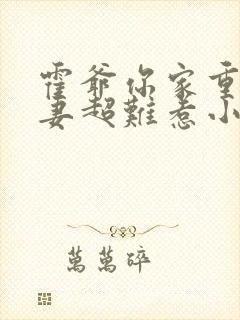 霍爺你家重
妻超難惹小
萬萬碎